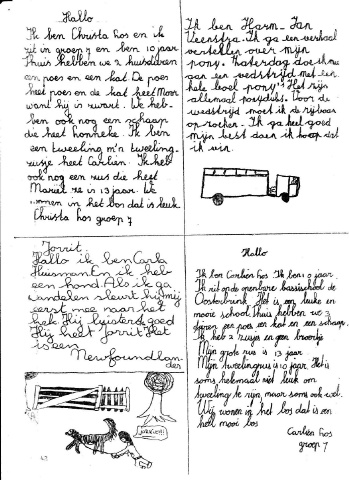 Hallo
Ik ben Christa Hos en ik
zit in groep 7 en ben 10 jaar
Thuis hebben we 2 huisdieren
een poes en een kat. De poes
heet poes en de kat heet Moor
want hij is zwart. We heb-
ben ook nog een schaap
die heet honneke. Ik ben
een tweeling m'n tweeling-
zusje heet Carlien. Ik heb
ook nog een zus die heet
Mariët ze is 13 jaar. We
wonen in het bos dat is leuk.
Christa Hos groep 7
Ik ben Harm-Jan
Veenstra. Ik ga een verhaal
vertellen over mijn
pony. Zaterdag doe ik mee
aan een wedstrijd met een
hele boel pony's Het zijn
allemaal Voor de
wedstrijd moet ik de rijbaan
op Ik ga heel goed
mijn best doen ik hoop dat
ik win.
Jorrit
Hallo ik ben Carla
Huisman. En ik heb
een hond. Als ik ga
wandelen sleurt hij mij
eerst mee naar het
hek. Hij luisterd goed
Hij heet Jorrit. Het
is een
Newfoundlan-
der
Hallo
Ik ben Carlien Hos. Ik ben 10 jaar.
Ik zit op de openbare basisschool de
Oosterbrink. Het is een leuke en
mooie school. Thuis hebben we 3
dieren een poes een kat en een schaap.
Ik heb 2 zusjes en geen broertje
Mijn grote zus is 13 jaar
Mijn tweelingzus is 10 jaar. Het is
soms helemaal niet leuk om
tweeling te zijn, maar soms ook wel.
Wij wonen in het bos dat is een
heel mooi bos
Carlien Hos
groep 7